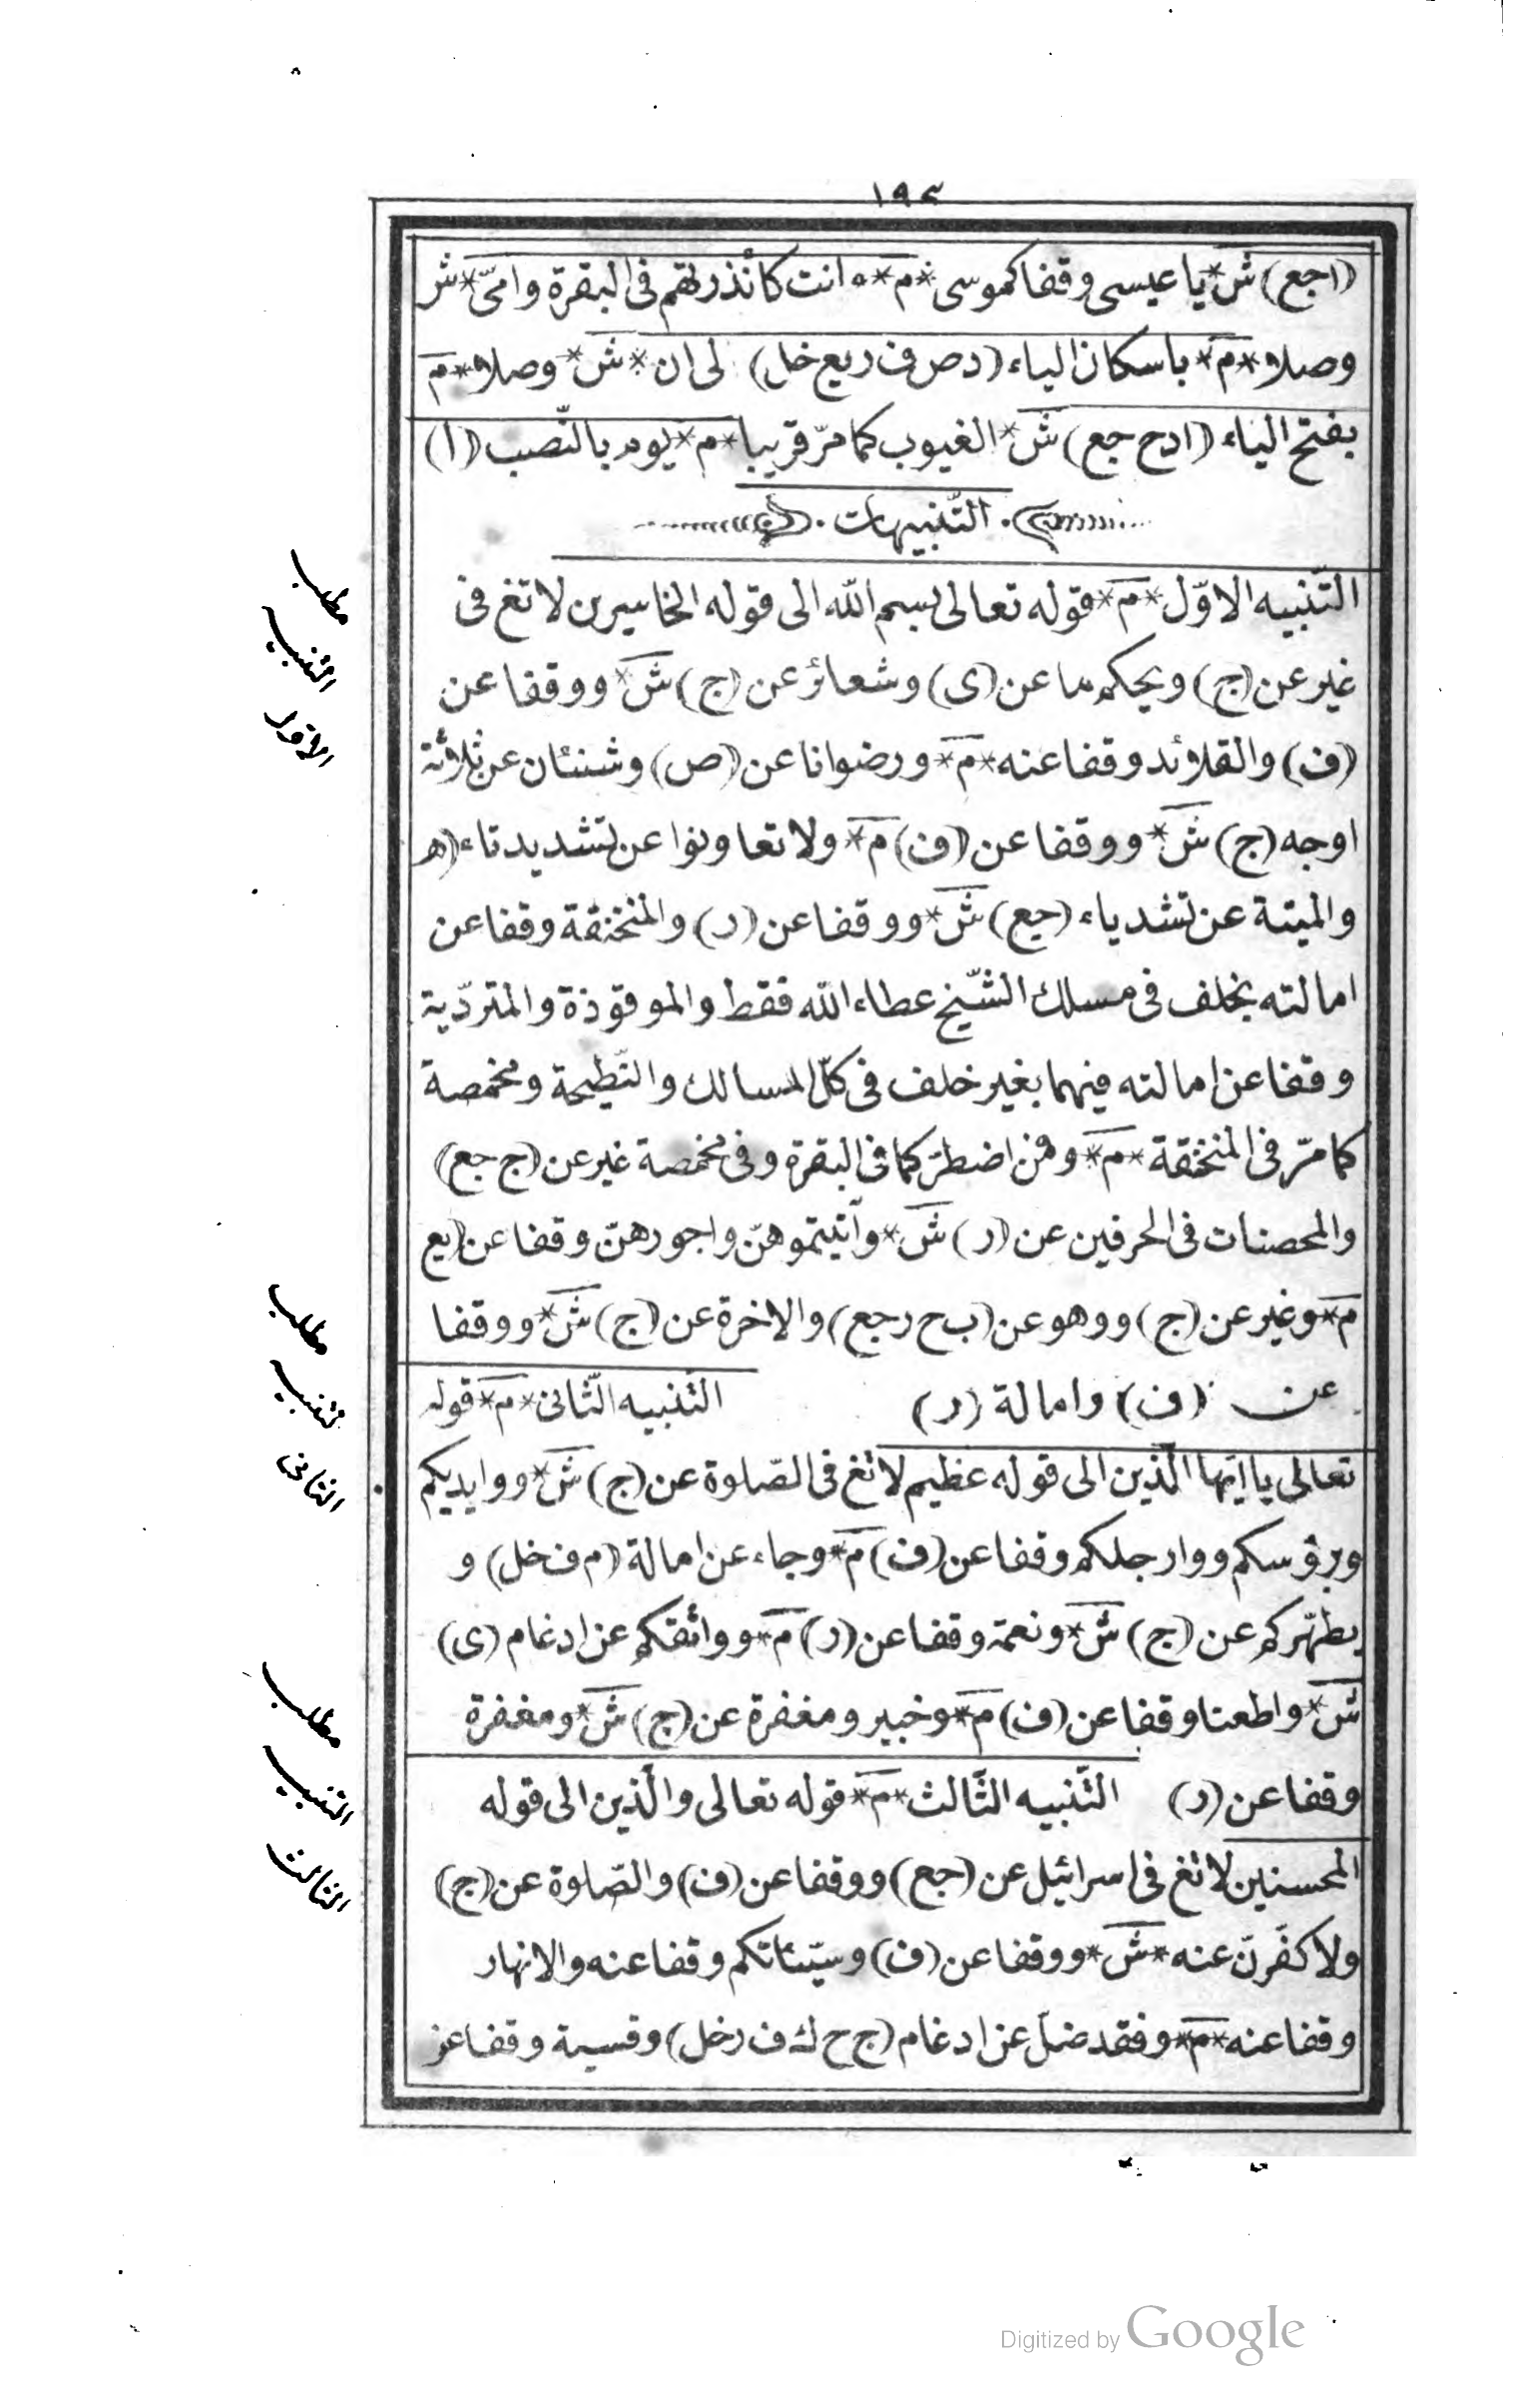 ١٩٢
(اجع) ش* يا عيسى وقفا كموسى * م * ءانت كأنذرتهم فى البقرة وامّى * ش
وصلا * م * باسكان الياء (دص ف ريع خل) لى ان * ش * وصلا * م
بفتح الياء (ادح جع) ش * الغيوب كما مرّ قريبا * م * يوم بالنّصب (ا)
التّنبيهات
التّنبيه الاوّل * م * قوله تعالى بسم الله الى قوله الخاسرين لا تغ فى
غير عن (ج) ويحكم ما عن (ى) وشعائر عن (ج) ش * ووقفا عن
(ف) والقلائد وقفا عنه * م * ورضوانا عن (ص) وشنئان عن ثلاثة
اوجه (ج) ش * ووقفا عن (ف) م * ولا تعاونوا عن تشديد تاء (ه
والميتة عن تشد ياء (جع) ش * ووقفا عن (ر) والمنخنقة وقفا عن
امالته بخلف فى مسلك الشّيخ عطاء الله فقط والموقوذة والمتردّية
وقفا عن امالته فيهما بغير خلف فى كلّ المسالك والنّطيحة ومخمصة
كما مرّ فى المنخنقة * م * وفمن اضطرّ كما فى البقرة وفى مخمصة غير عن (ج جع)
والمحصنات فى الحرفين عن (ر) ش * وآتيتموهنّ واجورهنّ وقفا عن (يع
م * وغير عن (ج) ووهو عن (ب ح ر جع) والاخرة عن (ج) ش * ووقفا
عن (ف) وامالة (ر) التّنبيه الثّانى * م * قوله
تعالى يا ايّها الّذين الى قوله عظيم لا تغ فى الصّلوة عن (ج) ش * ووايديكم
وبرؤسكم ووارجلكم وقفا عن (ف) م * وجاء عن امالة (م ف خل) و
يطهّركم عن (ج) ش * ونعمة وقفا عن (ر) م * وواثقكم عن ادغام (ى)
ش * واطعنا وقفا عن (ف) م * وخبير ومغفرة عن (ج) ش * ومغفرة
وقفا عن (ر) التّنبيه الثّالث * م * قوله تعالى والّذين الى قوله
المحسنين لا تغ فى اسرائيل عن (جع) ووقفا عن (ف) والصّلوة عن (ج)
ولاكفّرنّ عنه * ش * ووقفا عن (ف) وسيّئاتكم وقفا عنه والانهار
وقفا عنه * م * وفقد ضلّ عن ادغام (ج ح ك ف ر خل) وقسية وقفا عن
مطلب
التنبيه
الاول
مطلب
تنبيه
الثانى
مطلب
التنبيه
الثالث
Digitized by Google